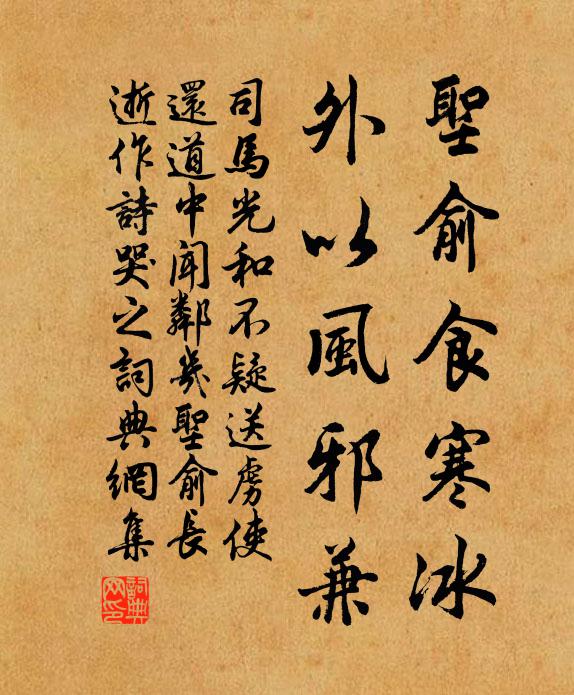 聖俞食寒冰
外以風邪兼
司馬光和不疑送虜使
還道中聞鄰幾聖俞長
逝作詩哭之詞典網集
詞典網印